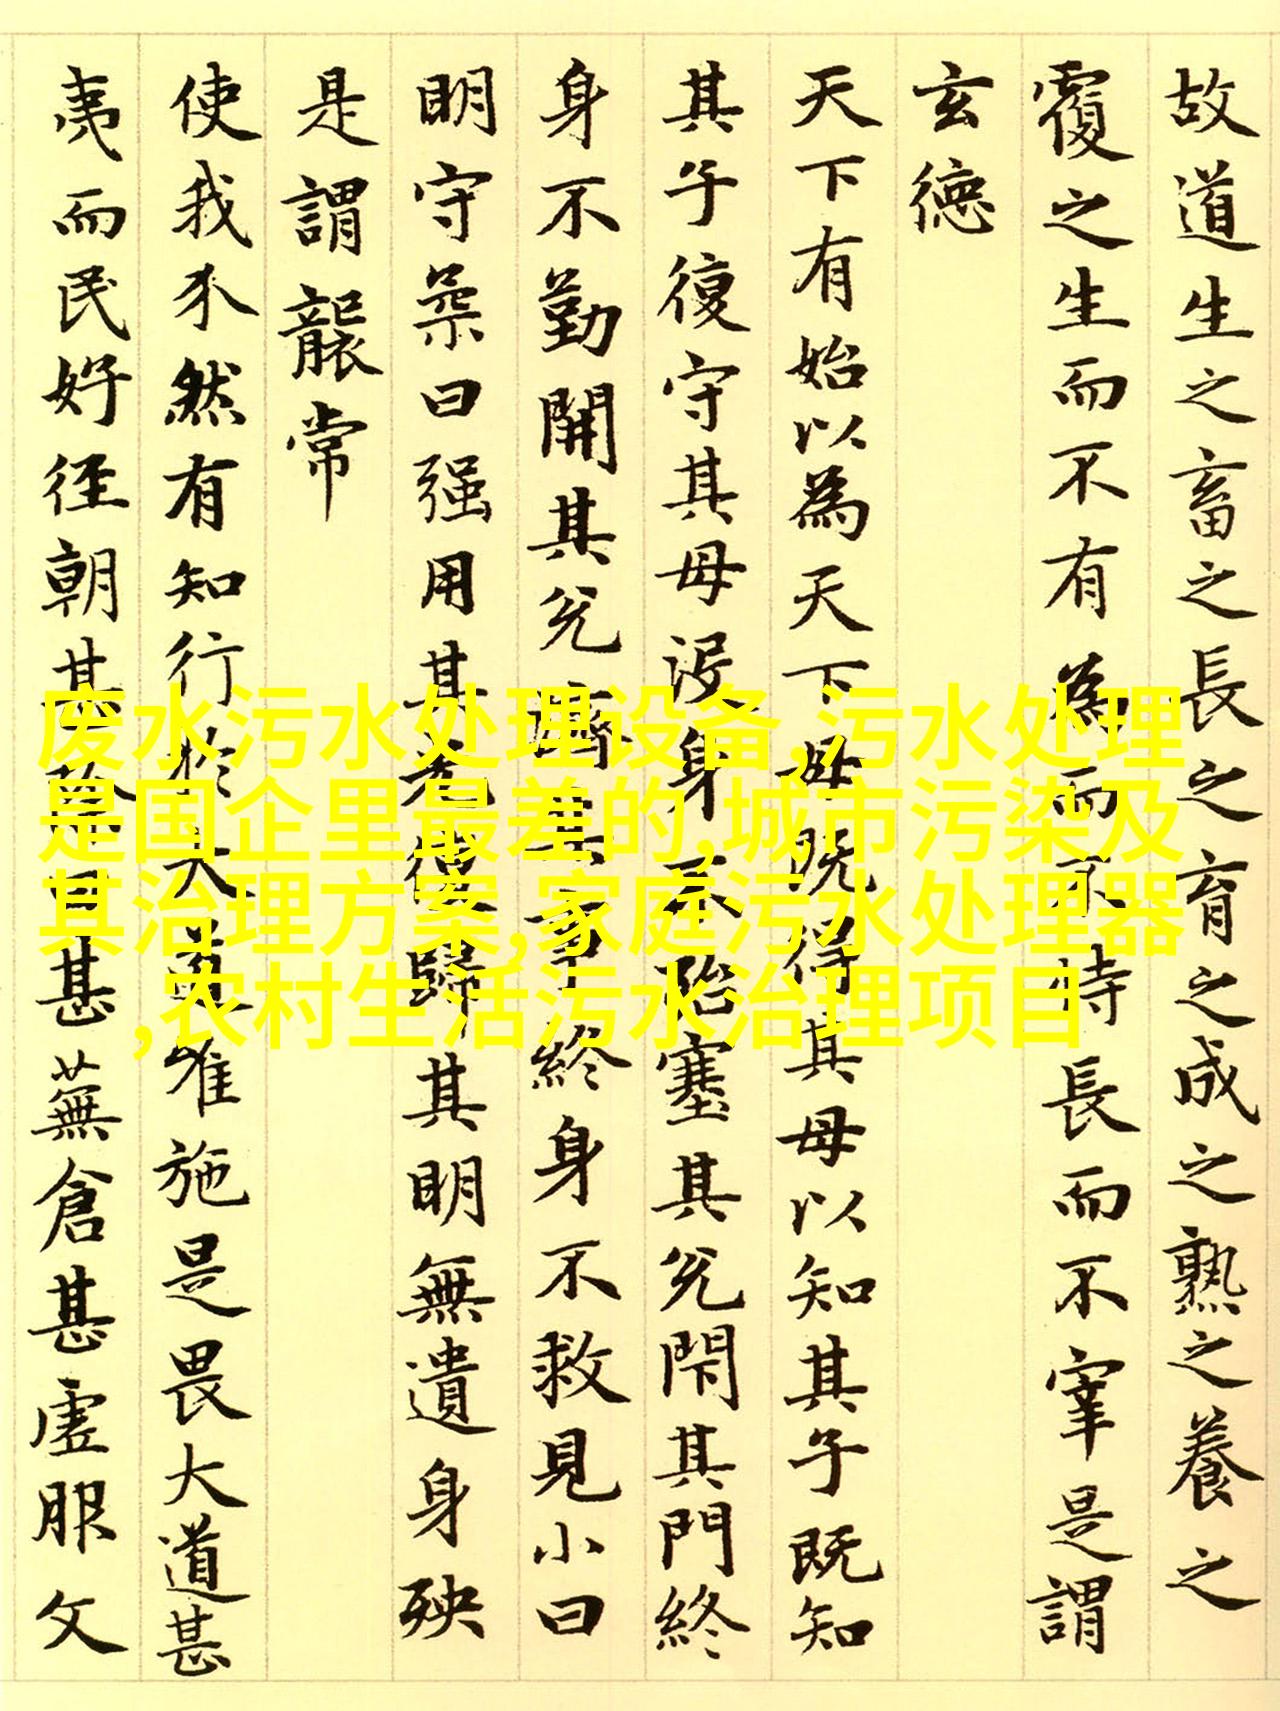 故道生之畜之長之育之成之熟之養之
覆之生而不有為而不恃長而不宰是謂
玄德
天下有始以為天下母既得其母以知其子既知
其子復守其母没身不殆塞其兊閇其門終
身不勤開其兊濟其事終身不救見小曰
明守柔曰强用其光復歸其明無遺身殃
是謂襲常
使我介然有知行於大道唯施是畏大道甚
夷而民好徑朝甚除田甚蕪倉甚虛服文
废水污水处理设备,污水处理
是国企里最差的,城市污染及
其治理方案,家庭污水处理器
,农村生活污水治理项目